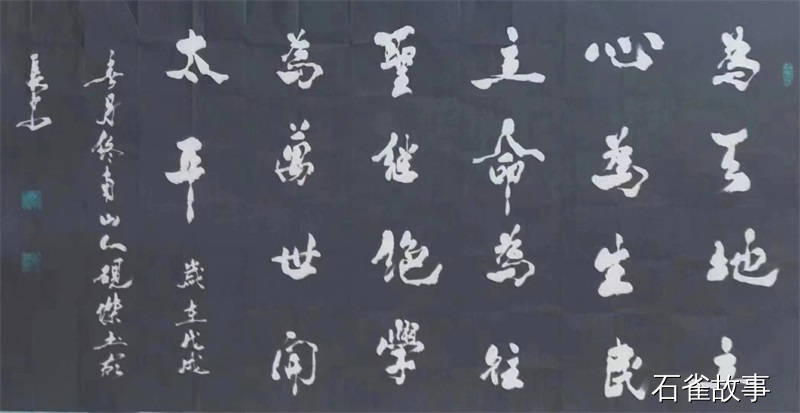 為天地立
心為生民
立命為往
聖继绝學
為萬世開
太平
歲在戊戌
春月終南山人硯書於
長安
石雀故事